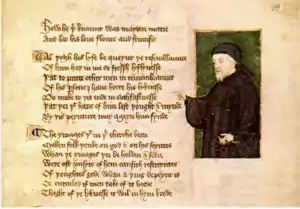 How he þi servaunt was mayden marie
And lat his loue floure and fructifie
Al þogh his lyfe be queynt þe resemblaunce
Of him haþ in me so fressh lyflynesse
Þat to putte othir men in remembraunce
Of his persone I haue heere his lyknesse
Do make to þis ende in sothfastnesse
Þat þei þt haue of him lest þought & mynde
By þis peynture may ageyn him fynde
The ymages þt in þe chirche been
Maken folk þenke on god & on his seyntes
Whan þe ymages þei beholden & seen
Were oft vnsyte of hem causith restreyntes
Of þoughtes gode whan a þing depeynt is
Or entailed if men take of it heede
Thoght of þe lyknesse it wil in hym brede